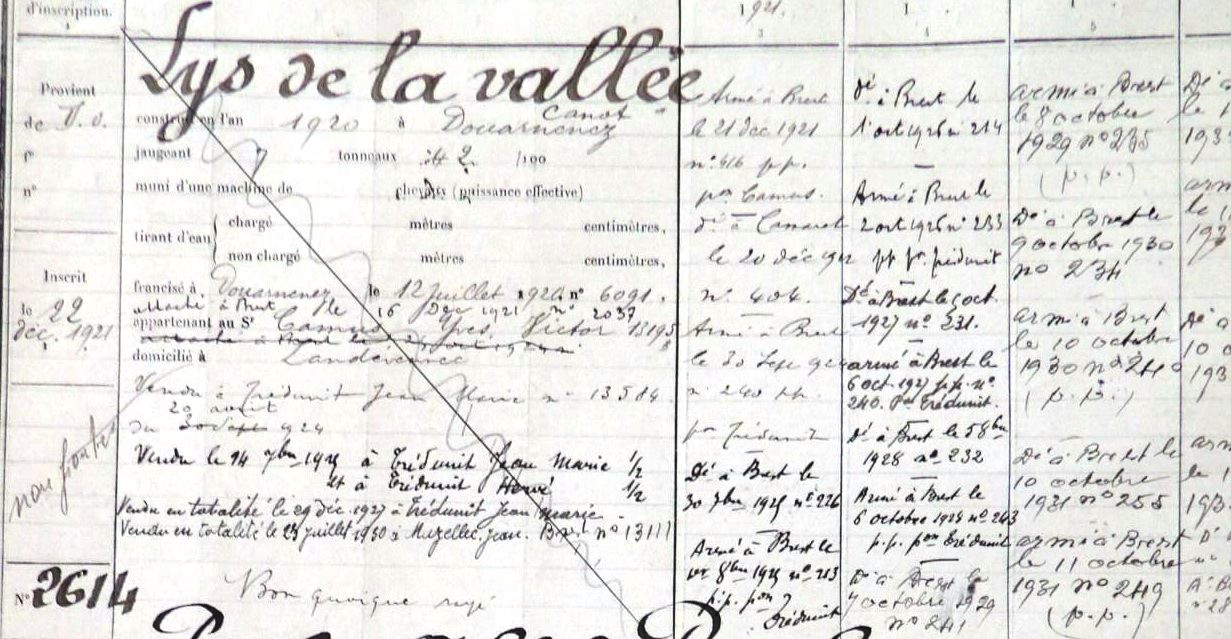 d'inscription.
Provient
de
Fº
nº
Inscrit
le 22
déc. 1921
non porté
Nº 2614
Lys de la vallée
Canot
construit en l'an 1920 à Douarnenez
jaugeant 7 tonneaux 42 /100
muni d'une machine de chevaux (puissance effective)
tirant d'eau
chargé mètres centimètres,
non chargé mètres centimètres,
francisé à Douarnenez le 12 Juillet 1920 nº 6091.
attaché à Brest le 16 Déc 1921 nº 2037
appartenant au Sr Camus Yves Victor 13195
domicilié à Landévennec
Vendu à Trédunit Jean Marie nº 13584
20 avril
du 924
Vendu le 14 7bre 1925 à Trédunit Jean Marie 1/2
et à Trédunit Hervé 1/2
Vendu en totalité le 29 déc. 1927 à Trédunit Jean Marie
Vendu en totalité le 23 juillet 1930 à Muzellec Jean. Brest nº 13111
Bon quoique rayé
1921.
3
Armé à Brest
le 21 déc 1921
nº 416 p.p.
pon Camus.
Dé à Camaret
le 20 déc 1922
nº 404.
Armé à Brest
le 30 Sept 924
nº 240 p.p.
pon Trédunit
Dé à Brest le
30 7bre 1925 nº 226
Armé à Brest le
1er 8bre 1925 nº 213
p.p. pon
Trédunit
4
Dé à Brest le
1 oct 1926 nº 214
Armé à Brest le
2 oct 1926 nº 233
pp pon Trédunit
Dé à Brest le 5 oct.
1927 nº 231.
armé à Brest le
6 oct 1927 p.p. nº
240. pon Trédunit.
Dé à Brest le 5 8bre
1928 nº 232
Armé à Brest le
6 octobre 1928 nº 243
p.p. pon Trédunit
Dé à Brest le
7 octobre 1929
nº 241
5
armé à Brest
le 8 octobre
1929 nº 235
(p.p.)
Dé à Brest le
9 octobre 1930
nº 234
armé à Brest
le 10 octobre
1930 nº 240
(p.p.)
Dé à Brest le
10 octobre
1931 nº 255
armé à Brest
le 11 octobre
1931 nº 249
(p.p.)
Dé à
le
193
armé
le
193
Dé à
10 o
193
armé
le
193